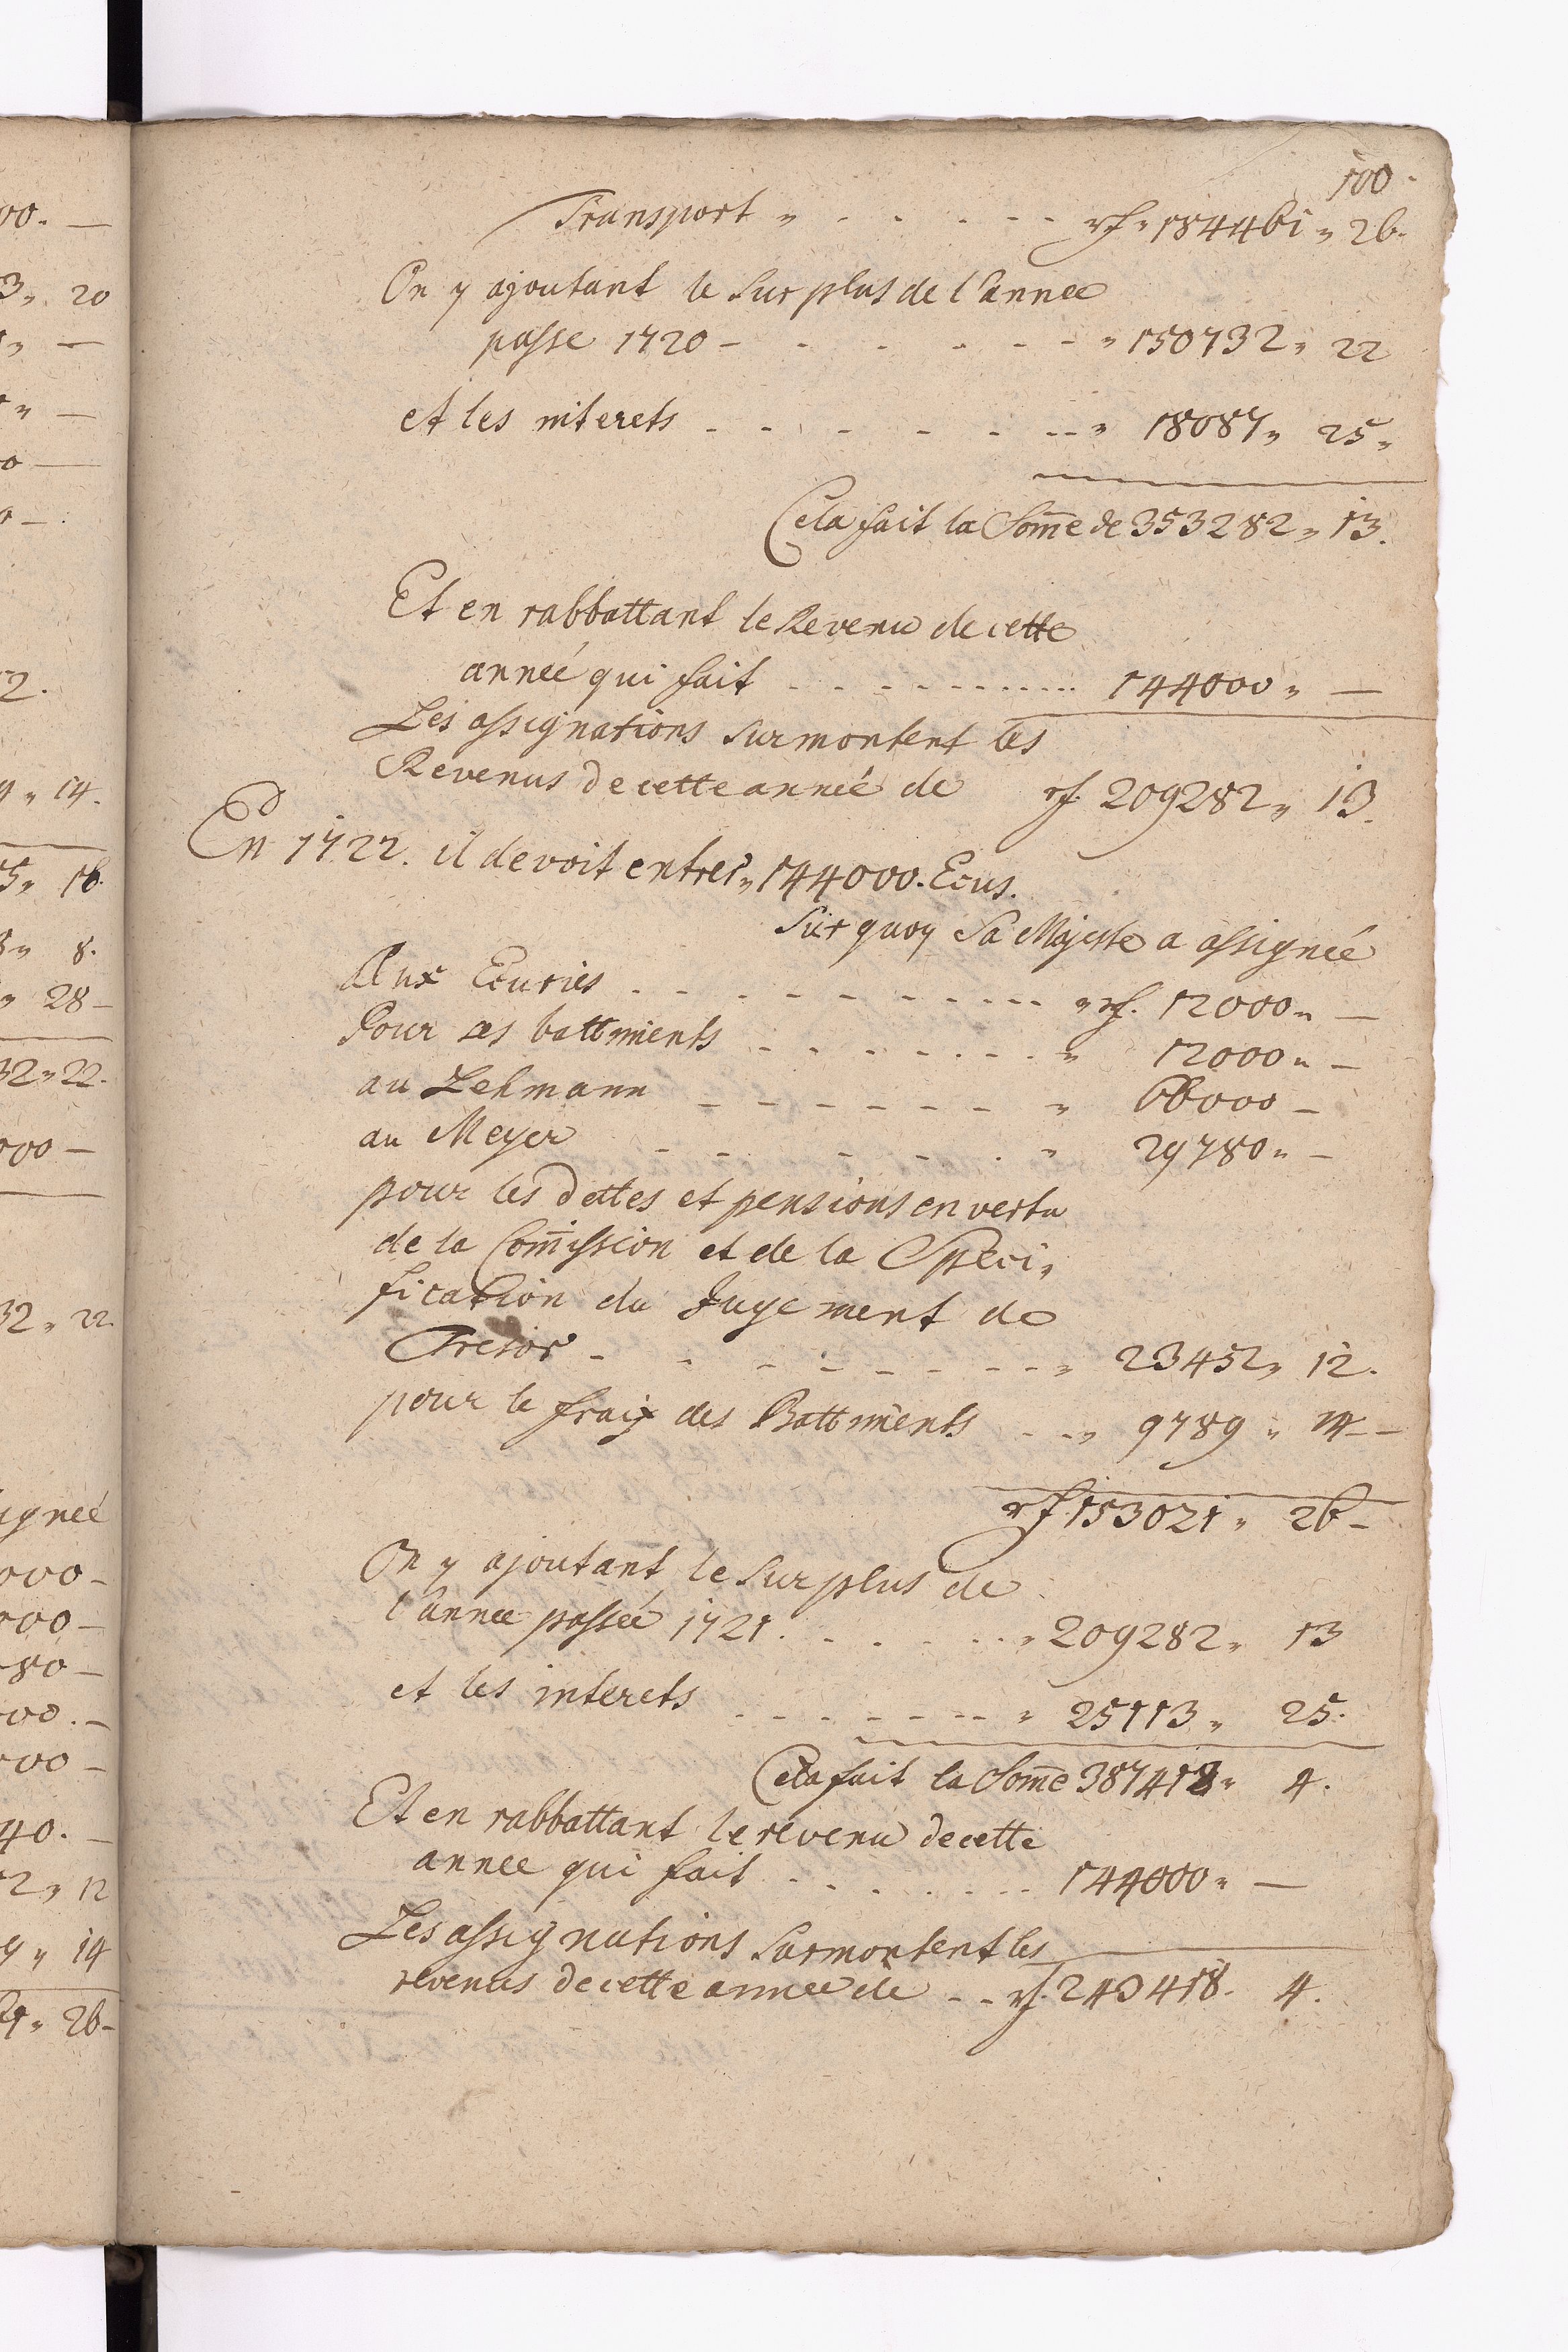 100.
Transport " - - - - - rf. 184461 " 26.
On y ajoutant le Surplus de l'annee
passe 1720 - - - - - - " 150732 " 22
et les interets - - - - - - " 18087 " 25 "
Cela fait la Som̄e de 353282 " 13.
Et en rabbattant le Revenu de cette
anneé qui fait - - - - - - 144000 " —
Les assignations Surmontent les
Revenus de cette anneé de rf. 209282 " 13.
En 1722. il devoit entrer " 144000. Ecus.
Sur quoy Sa Majeste a assigneé
Aux Ecuries - - - - - - " rf. 12000 " —
Pour les battiments - - - - - - " 12000 " —
au Lehmann - - - - - - " 66000 —
au Meyer - - - - - - " 29780 " —
pour les dettes et pensions en vertu
de la Com̄ission et de la Speci,
fication du Jugement de
Tresor - - - - - - " 23452 " 12.
pour le fraix des Battiments - - " 9789 " 14 —
rf. 153021 " 26 —
On y ajoutant le Surplus de
l'annee passeé 1721. - - - - - " 209282 " 13
et les interets - - - - - - " 25113 " 25.
Cela fait la Som̄e 387418 " 4.
Et en rabbattant le revenu de cette
annee qui fait - - - - - - 144000 " —
Les assignations Surmontent les
revenus de cette anneé de - - rf. 243418. 4.
00. —
3 " 20
2.
9 " 14.
5 " 16.
8.
" 28 —
32 " 22.
000 —
32 " 22.
igneé
000 —
000 —
80 —
00. —
000 —
40. —
2 " 12
9 " 14
21 " 26 —